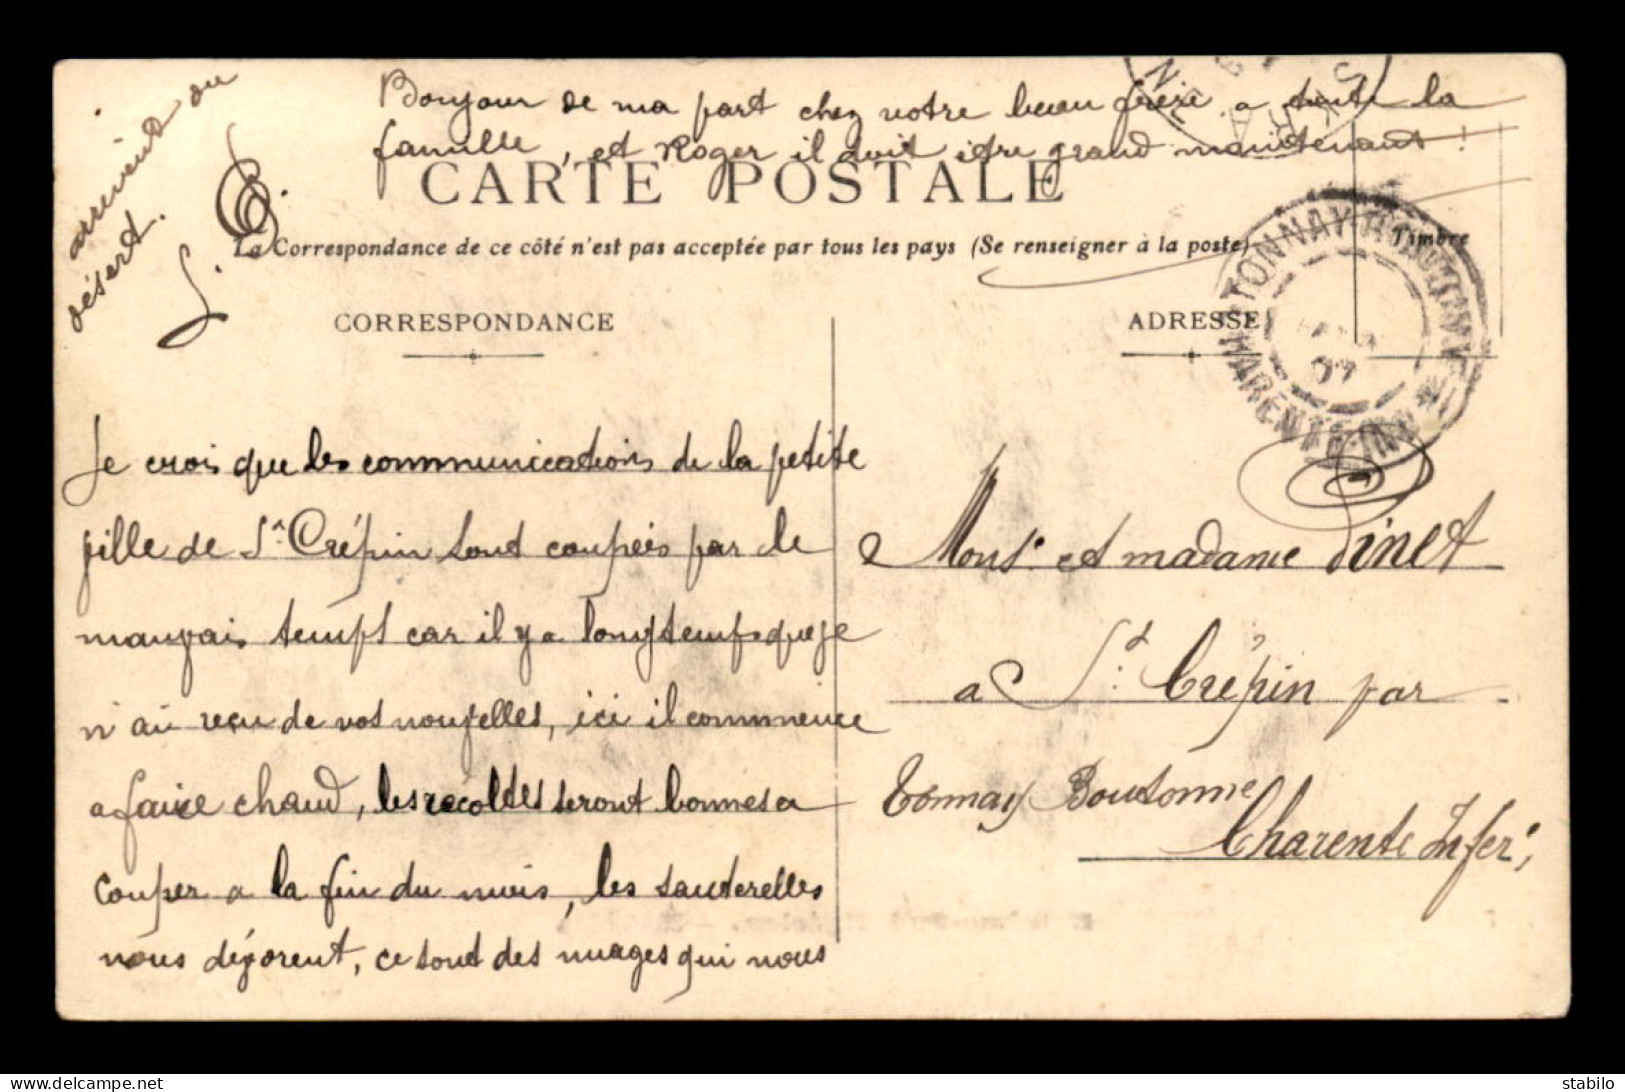 Bonjour de ma part chez votre beau frère a toute la
famille, et Roger il doit être grand maintenant !
arrivent du
désert.
CARTE POSTALE
La Correspondance de ce côté n'est pas acceptée par tous les pays (Se renseigner à la poste)
Timbre
TONNAY-BOUTONNE
CHARENTE INFRE
07
CORRESPONDANCE
ADRESSE
Je crois que les communications de la petite
fille de St Crépin sont coupées par le
mauvais temps car il y a longtemps que je
n'ai reçu de vos nouvelles, ici il commence
a faire chaud, les recoltes seront bonnes a
couper a la fin du mois, les sauterelles
nous dévorent, ce sont des nuages qui nous
Monsr et madame Dinet
a St Crépin par
Tonnay Boutonne
Charente Infer,
stabilo